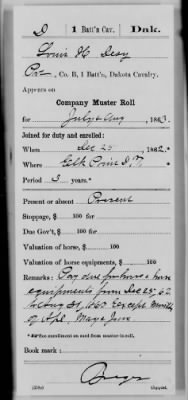 D 1 Batt'n Cav. Dak.
Louis H.
Co. B, 1 Batt'n, Dakota Cavalry.
Appears on
Company Muster Roll
for July & Aug, 1863.
Joined for duty and enrolled:
When Dec 25, 1862.*
Where Elk Point D.T.
Period 3 years.*
Present or absent Present
Stoppage, $ 100 for
Due Gov't, $ 100 for
Valuation of horse, $ 100
Valuation of horse equipments, $ 100
Remarks: Pay due for horse & horse
equipments from Dec 25, 62
to Aug 31, 1863 except months
of Apl, May & June
*See enrollment on card from muster-in roll.
Book mark:
Copyist.